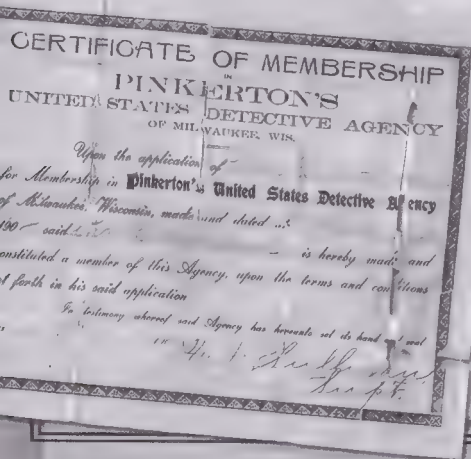 CERTIFICATE OF MEMBERSHIP
IN
PINKERTON'S
UNITED STATES DETECTIVE AGENCY
OF MILWAUKEE, WIS.
Upon the application of
for Membership in Pinkerton's United States Detective Agency
of Milwaukee, Wisconsin, made and dated at
190 said
is hereby made and
onstituted a member of this Agency, upon the terms and conditions
t forth in his said application
In testimony whereof said Agency has hereunto set its hand and seal
Supt.